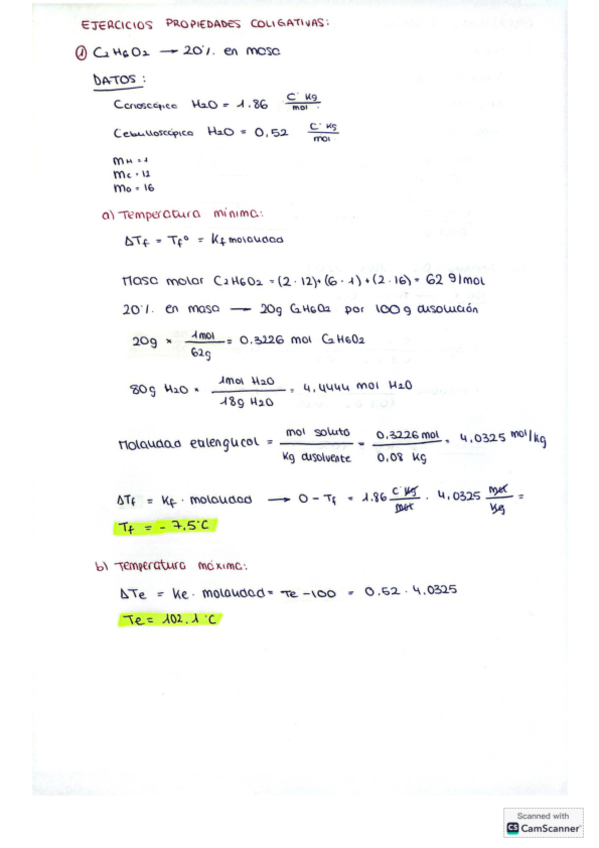 EJERCICIOS PROPIEDADES COLIGATIVAS:
① C2H6O2 → 20% en masa
DATOS:
Crioscópica H2O = 1.86 °C Kg / mol
Ebulloscópica H2O = 0,52 °C Kg / mol
mH = 1
mC = 12
mO = 16
a) Temperatura mínima:
ΔTf = Tfº = Kf molalidad
Masa molar C2H6O2 = (2 · 12) + (6 · 1) + (2 · 16) = 62 g/mol
20% en masa → 20g C2H6O2 por 100 g disolución
20g × 1mol / 62g = 0.3226 mol C2H6O2
80g H2O × 1mol H2O / 18g H2O = 4,4444 mol H2O
Molalidad etilenglicol = mol soluto / Kg disolvente = 0.3226 mol / 0.08 Kg = 4.0325 mol/kg
ΔTf = Kf · molalidad → 0 - Tf = 1.86 °C Kg / mol · 4.0325 mol / Kg =
Tf = - 7.5°C
b) Temperatura máxima:
ΔTe = Ke · molalidad = Te - 100 = 0.52 · 4.0325
Te = 102.1°C
Scanned with
CS CamScanner